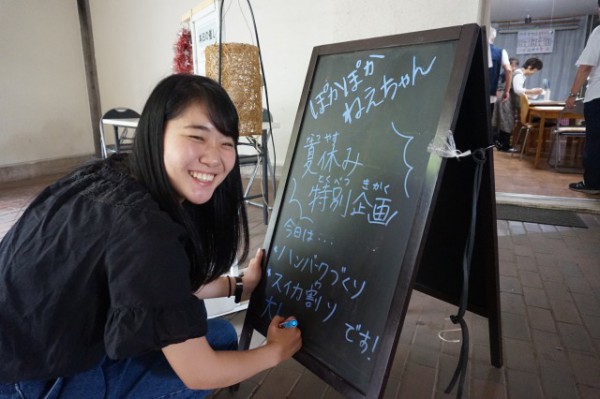 ぽかぽか
ねえちゃん
夏休み
とくべつ きかく
特別企画
今日は…
・ハンバーグづくり
わ
・スイカ割り
大
です!